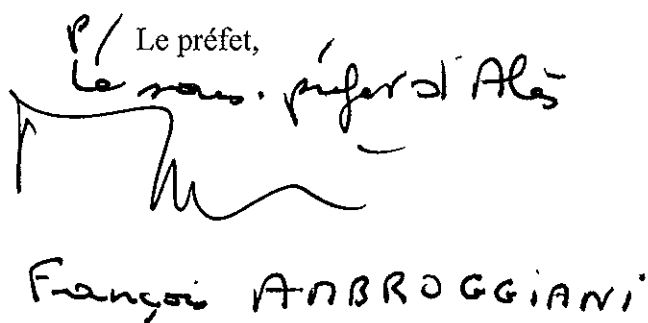 P/ Le préfet,
Le sous-préfet d'Alès
François AMBROGGIANI